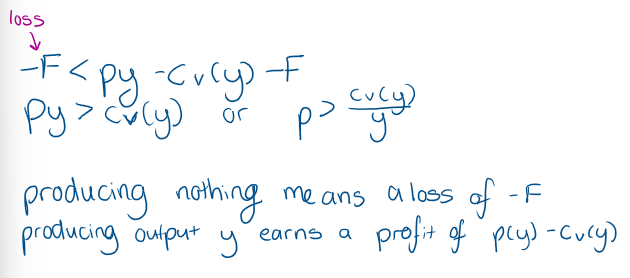 loss
↓
-F < py - Cv(y) - F
py > Cv(y) or p > Cv(y)/y
producing nothing means a loss of -F
producing output y earns a profit of p(y) - Cv(y)